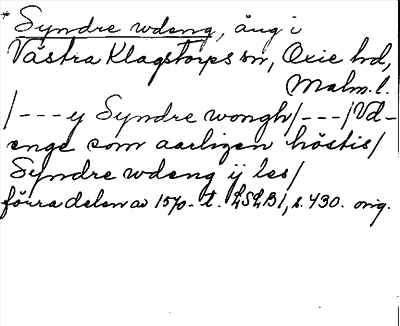 * Syndre wdeng, äng i
Västra Klagstorps sn, Oxie hd,
Malm. l.
/--- y Syndre wongh/---/Vd-
enge som aarligen höstis/
Syndre wdeng ij les/
förra delen av 1570-t. LSLB 1, s. 430. orig.